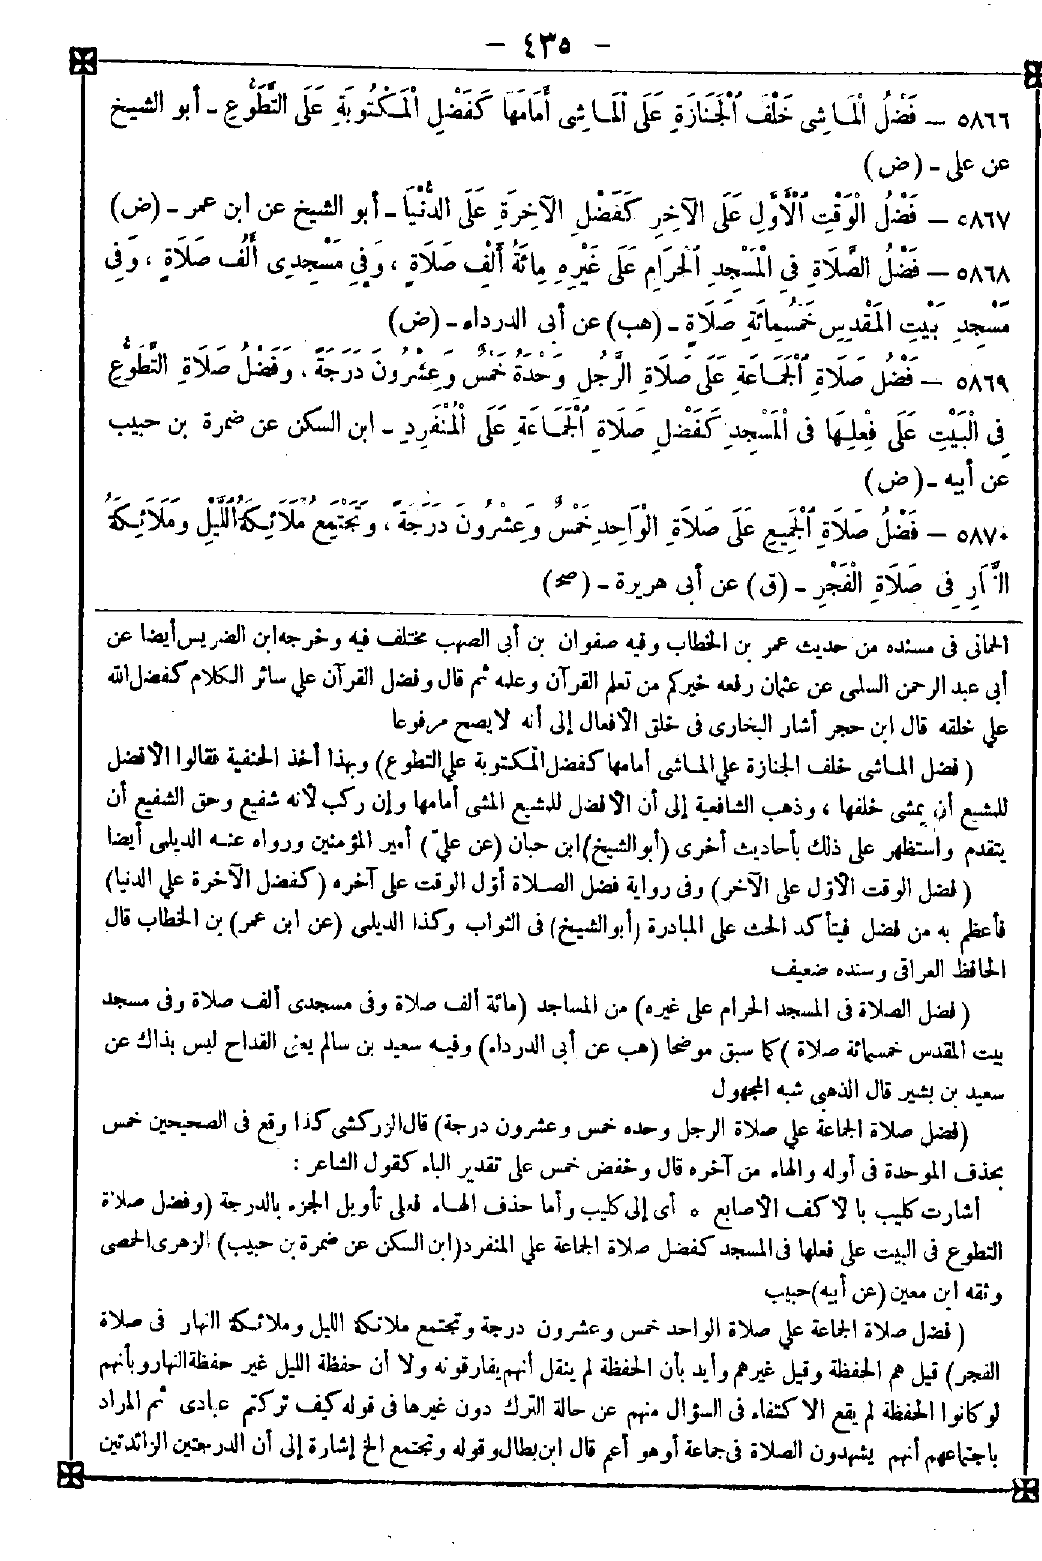 - ٤٣٥ -
٥٨٦٦ – فَضْلُ الْمَاشِى خَلْفَ الْجَنَازَةِ عَلَى الْمَاشِى أَمَامَهَا كَفَضْلِ الْمَكْتُوبَةِ عَلَى التَّطَوُّعِ - أبو الشيخ
عن على - (ض)
٥٨٦٧ – فَضْلُ الْوَقْتِ الْأَوَّلِ عَلَى الآخِرِ كَفَضْلِ الآخِرَةِ عَلَى الدُّنْيَا - أبو الشيخ عن ابن عمر - (ض)
٥٨٦٨ – فَضْلُ الصَّلَاةِ فِى الْمَسْجِدِ الْحَرَامِ عَلَى غَيْرِهِ مِائَةُ أَلْفِ صَلَاةٍ ، وَفِى مَسْجِدِى أَلْفُ صَلَاةٍ ، وَفِى
مَسْجِدِ بَيْتِ الْمَقْدِسِ خَمْسُمِائَةِ صَلَاةٍ - (هب) عن أبى الدرداء - (ض)
٥٨٦٩ – فَضْلُ صَلَاةِ الْجَمَاعَةِ عَلَى صَلَاةِ الرَّجُلِ وَحْدَهُ خَمْسٌ وَعِشْرُونَ دَرَجَةً ، وَفَضْلُ صَلَاةِ التَّطَوُّعِ
فِى الْبَيْتِ عَلَى فِعْلِهَا فِى الْمَسْجِدِ كَفَضْلِ صَلَاةِ الْجَمَاعَةِ عَلَى الْمُنْفَرِدِ - ابن السكن عن ضمرة بن حبيب
عن أبيه - (ض)
٥٨٧٠ – فَضْلُ صَلَاةِ الْجَمِيعِ عَلَى صَلَاةِ الْوَاحِدِ خَمْسٌ وَعِشْرُونَ دَرَجَةً ، وَتَجْتَمِعُ مَلَائِكَةُ اللَّيْلِ وَمَلَائِكَةُ
النَّهَارِ فِى صَلَاةِ الْفَجْرِ - (ق) عن أبى هريرة - (صح)
الحمانى فى مسنده من حديث عمر بن الخطاب وفيه صفوان بن أبى الصهب مختلف فيه وخرجه ابن الضريس أيضا عن
أبى عبد الرحمن السلمى عن عثمان رفعه خيركم من تعلم القرآن وعلمه ثم قال وفضل القرآن على سائر الكلام كفضل الله
على خلقه قال ابن حجر أشار البخارى فى خلق الأفعال إلى أنه لا يصح مرفوعا
( فضل الماشى خلف الجنازة على الماشى أمامها كفضل المكتوبة على التطوع) وبهذا أخذ الحنفية فقالوا الأفضل
للمشيع أن يمشى خلفها ، وذهب الشافعية إلى أن الأفضل للمشيع المشى أمامها وإن ركب لأنه شفيع وحق الشفيع أن
يتقدم واستظهر على ذلك بأحاديث أخرى (أبو الشيخ) ابن حبان (عن علىّ) أمير المؤمنين ورواه عنه الديلمى أيضا
( فضل الوقت الأوّل على الآخر) وفى رواية فضل الصلاة أوّل الوقت على آخره (كفضل الآخرة على الدنيا)
فأعظم به من فضل فيتأكد الحث على المبادرة (أبو الشيخ) فى الثواب وكذا الديلمى (عن ابن عمر) بن الخطاب قال
الحافظ العراقى وسنده ضعيف
( فضل الصلاة فى المسجد الحرام على غيره) من المساجد (مائة ألف صلاة وفى مسجدى ألف صلاة وفى مسجد
بيت المقدس خمسمائة صلاة ) كما سبق موضحا (هب عن أبى الدرداء) وفيه سعيد بن سالم يعنى القداح ليس بذاك عن
سعيد بن بشير قال الذهبى شبه المجهول
(فضل صلاة الجماعة على صلاة الرجل وحده خمس وعشرون درجة) قال الزركشى كذا وقع فى الصحيحين خمس
بحذف الموحدة فى أوله والهاء من آخره قال وخفض خمس على تقدير الباء كقول الشاعر :
أشارت كليب بالأكف الأصابع ٥ أى إلى كليب وأما حذف الهاء فعلى تأويل الجزء بالدرجة (وفضل صلاة
التطوع فى البيت على فعلها فى المسجد كفضل صلاة الجماعة على المنفرد (ابن السكن عن ضمرة بن حبيب) الزهرى الحمصى
وثقه ابن معين (عن أبيه) حبيب
( فضل صلاة الجماعة على صلاة الواحد خمس وعشرون درجة وتجتمع ملائكة الليل وملائكة النهار فى صلاة
الفجر) قيل هم الحفظة وقيل غيرهم وأيد بأن الحفظة لم ينقل أنهم يفارقونه ولا أن حفظة الليل غير حفظة النهار وبأنهم
لو كانوا الحفظة لم يقع الاكتفاء فى السؤال منهم عن حالة الترك دون غيرها فى قوله كيف تركتم عبادى ثم المراد
باجتماعهم أنهم يشهدون الصلاة فى جماعة أو هو أعم قال ابن بطال وقوله وتجتمع الخ إشارة إلى أن الدرجتين الزائدتين